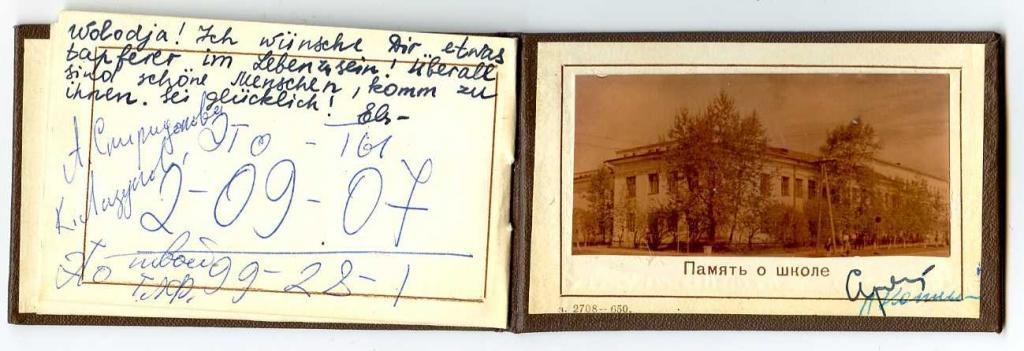 Wolodja! Ich wünsche Dir etwas
tapferer im Leben zu sein! Überall
sind schöne Menschen, komm zu
ihnen. Sei glücklich!
А Спиридонова
Это - ты
2-09-07
твой
тлф. 99-28-1
Память о школе
з. 2708-650.